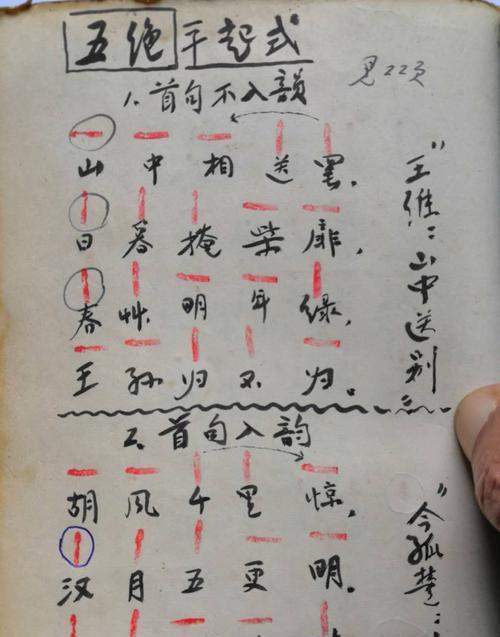 五绝平起式
见22页
1.首句不入韵
山中相送罢，
日暮掩柴扉，
春艸明年绿，
王孙归不归。
"王维：山中送别
2.首句入韵
胡风千里惊，
汉月五更明。
"令狐楚：